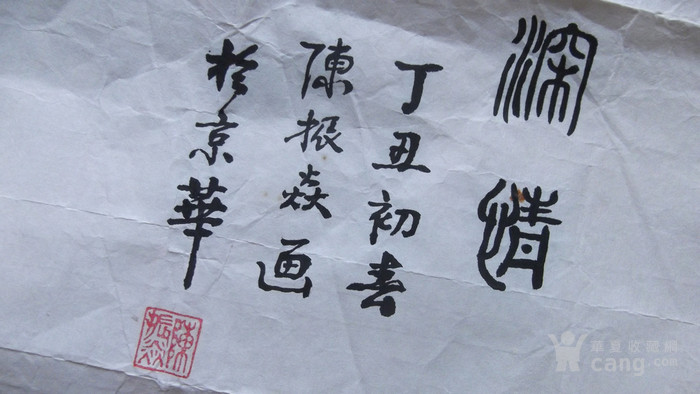 深情
丁丑初春
陳振焱画
於京華
陳振焱
華夏收藏網
cang.com